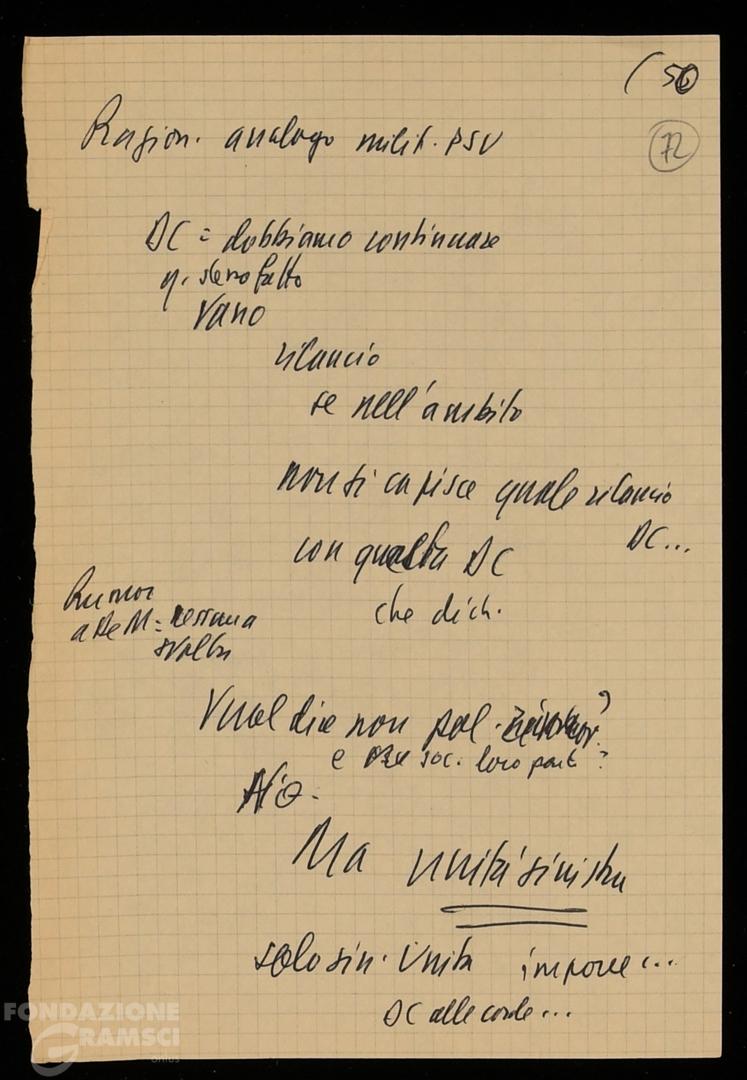 (50
72
Ragion. analogo milit. PSU
DC = dobbiamo continuare
q. s'era fatto
Vano
rilancio
se nell'ambito
non si capisce quale rilancio
DC...
con questa DC
che dich.
Rumor
a De M = nessuna
svolta
Vuol dire non pol. ?
e soc. loro part ?
No.
Ma unità sinistra
solo sin. Unita impone...
DC alle corde...
FONDAZIONE
GRAMSCI
onlus